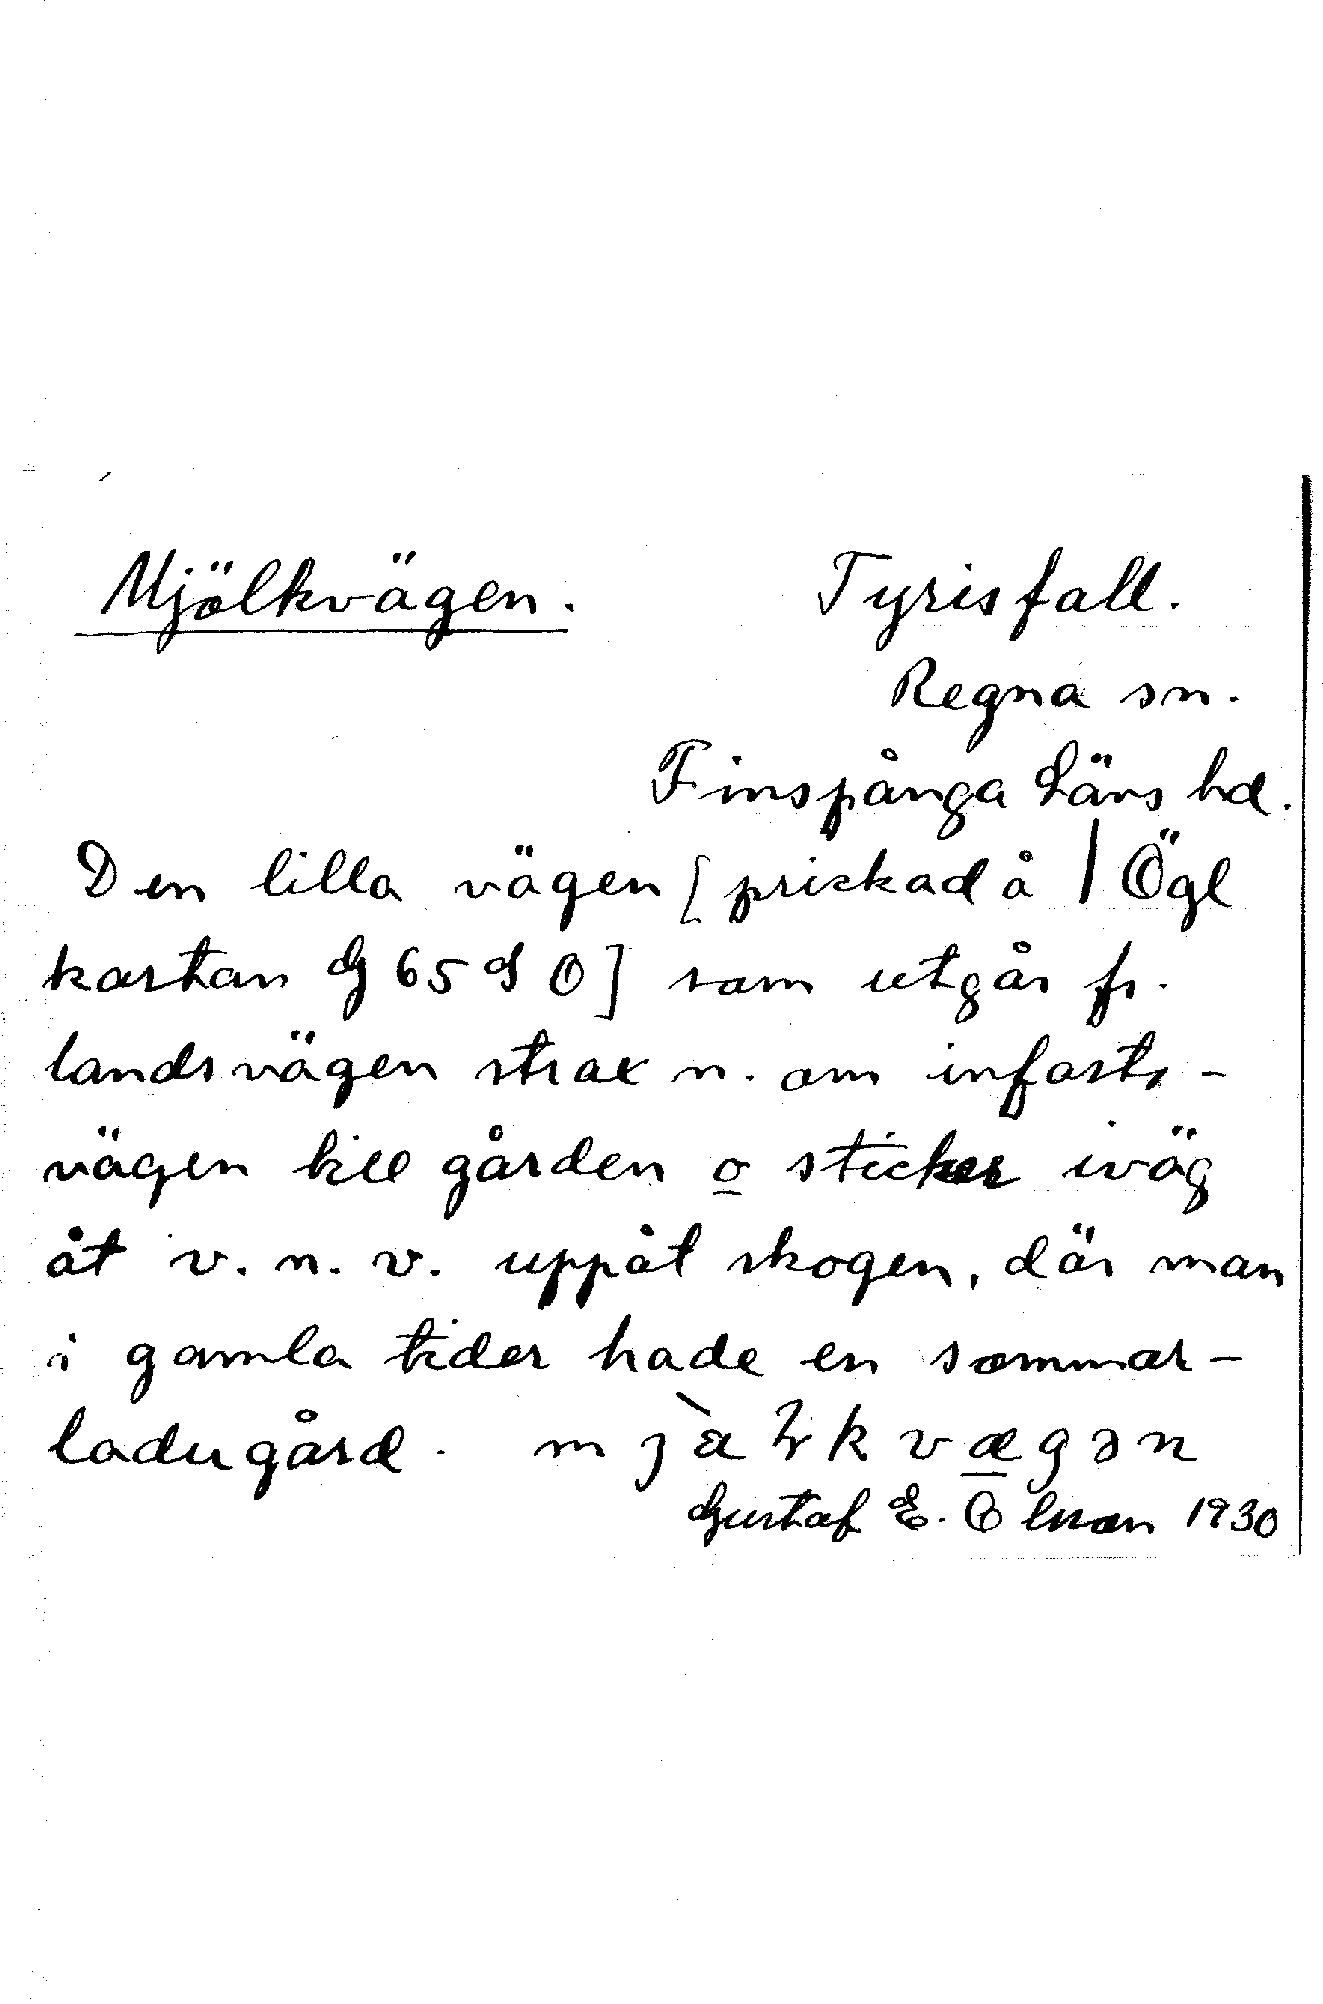 Mjölkvägen. Tyrisfall.
Regna sn.
Finspånga Läns hd.
Den lilla vägen [prickad å Ögl
kartan G 65 S O] som utgår fr.
landsvägen strax n. om infarts-
vägen till gården o sticker iväg
åt v. n. v. uppåt skogen, där man
i gamla tider hade en sommar-
ladugård.
Gustaf E. 1930